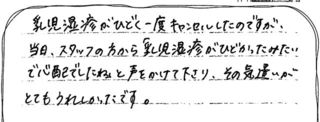 乳児湿疹がひどく一度キャンセルしたのですが、
当日、スタッフの方から乳児湿疹がひどかったみたい
で心配でしたねと声をかけて下さり、その気遣いが
とてもうれしかったです。